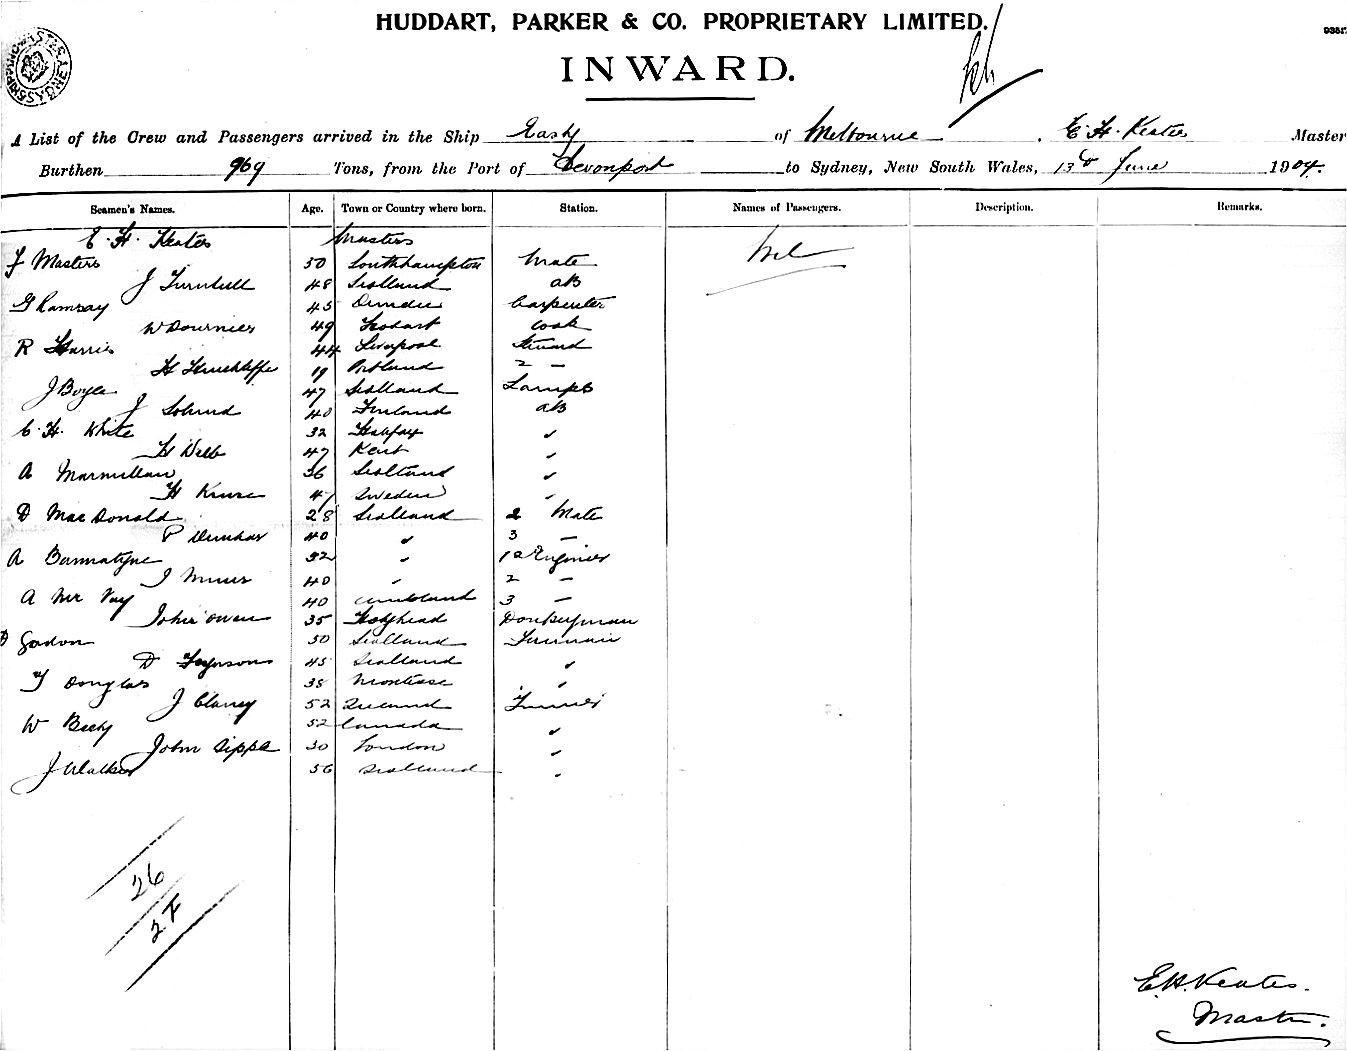 HUDDART, PARKER & CO. PROPRIETARY LIMITED.
INWARD.
A List of the Crew and Passengers arrived in the Ship Easby of Melbourne, E. H. Keates Master
Burthen 969 Tons, from the Port of Devonport to Sydney, New South Wales, 13 June 1904.
Seamen's Names. Age. Town or Country where born. Station. Names of Passengers. Description. Remarks.
E. H. Keates Masters
F Masters 50 Southhampton Mate Nil
J Turnbull 48 Scotland AB
G Ramsay 45 Dundee Carpenter
W 49 Hobart Cook
R Harris 44 Liverpool Steward
H Hinchliffe 19 Portland 2 —
J Boyle 47 Scotland Lamps
J 40 Finland AB
C. H. White 32 Halifax "
H Webb 47 Kent "
A Marmillan 36 Scotland "
H Kruse 47 Sweden "
D MacDonald 28 Scotland 2 Mate
P Dunbar 40 " 3 —
A Bannatyne 32 " 1st Engineer
J 40 " 2 —
A 40 3 —
John Owen 35 Holyhead Donkeyman
D Gordon 50 Scotland Fireman
D Ferguson 45 Scotland "
T Douglas 38 Montrose "
J Clancy 52 Ireland Trimmer
W 52 Canada "
John Sipps 30 London "
J Walker 56 Scotland "
26
2 F
E. H. Keates.
Master.